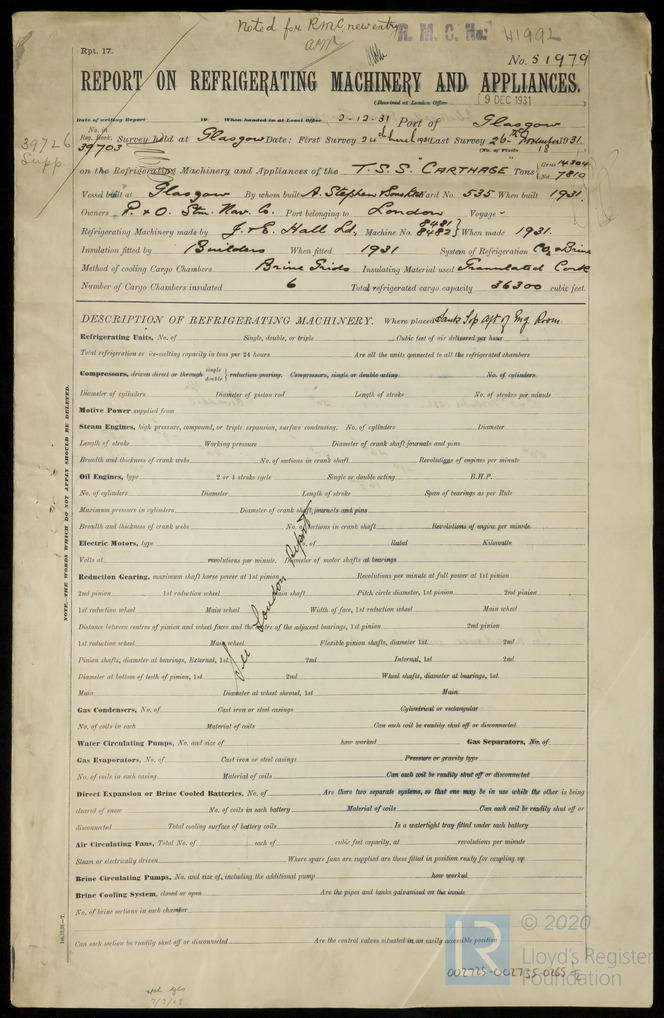 Noted for RMC new entry
R. M. C. No. 41992
Rpt. 17.
No. 51979
REPORT ON REFRIGERATING MACHINERY AND APPLIANCES.
(Received at London Office 9 DEC 1931
Date of writing Report 19 When handed in at Local Office 2-12-31 Port of Glasgow
39726 Supp.
No. in Reg. Book. Survey held at Glasgow Date: First Survey 24th March 1931 Last Survey 26th November 1931
39703 (No. of Visits 18
on the Refrigerating Machinery and Appliances of the T.S.S. "CARTHAGE" Tons { Gross 14304 Net 7810
Vessel built at Glasgow By whom built A. Stephen & Sons Ltd Yard No. 535 When built 1931.
Owners P. & O. Stm. Nav. Co. Port belonging to London Voyage -
Refrigerating Machinery made by J. & E. Hall Ld. Machine No. 8481 8482 } When made 1931.
Insulation fitted by Builders When fitted 1931 System of Refrigeration CO2 & Brine
Method of cooling Cargo Chambers Brine Grids Insulating Material used Granulated Cork
Number of Cargo Chambers insulated 6 Total refrigerated cargo capacity 36300 cubic feet.
DESCRIPTION OF REFRIGERATING MACHINERY. Where placed Tank Top aft of Eng. Room.
Refrigerating Units, No. of Single, double, or triple Cubic feet of air delivered per hour
Total refrigeration or ice-melting capacity in tons per 24 hours Are all the units connected to all the refrigerated chambers
Compressors, driven direct or through single double } reduction gearing. Compressors, single or double acting No. of cylinders
Diameter of cylinders Diameter of piston rod Length of stroke No. of strokes per minute
Motive Power supplied from
Steam Engines, high pressure, compound, or triple expansion, surface condensing. No. of cylinders Diameter
Length of stroke Working pressure Diameter of crank shaft journals and pins
Breadth and thickness of crank webs No. of sections in crank shaft Revolutions of engines per minute
Oil Engines, type 2 or 4 stroke cycle Single or double acting B.H.P.
No. of cylinders Diameter Length of stroke Span of bearings as per Rule
Maximum pressure in cylinders Diameter of crank shaft journals and pins
Breadth and thickness of crank webs No. of sections in crank shaft Revolutions of engine per minute
Electric Motors, type No. of Rated Kilowatts
Volts at revolutions per minute. Diameter of motor shafts at bearings
Reduction Gearing, maximum shaft horse power at 1st pinion Revolutions per minute at full power at 1st pinion
2nd pinion 1st reduction wheel Main shaft Pitch circle diameter, 1st pinion 2nd pinion
1st reduction wheel Main wheel Width of face, 1st reduction wheel Main wheel
Distance between centres of pinion and wheel faces and the centre of the adjacent bearings, 1st pinion 2nd pinion
1st reduction wheel Main wheel Flexible pinion shafts, diameter 1st 2nd
Pinion shafts, diameter at bearings, External, 1st 2nd Internal, 1st 2nd
Diameter at bottom of teeth of pinion, 1st 2nd Wheel shafts, diameter at bearings, 1st
Main Diameter at wheel shroud, 1st Main
See London Report
Gas Condensers, No. of Cast iron or steel casings Cylindrical or rectangular
No. of coils in each Material of coils Can each coil be readily shut off or disconnected
Water Circulating Pumps, No. and size of how worked Gas Separators, No. of
Gas Evaporators, No. of Cast iron or steel casings Pressure or gravity type
No. of coils in each casing Material of coils Can each coil be readily shut off or disconnected
Direct Expansion or Brine Cooled Batteries, No. of Are there two separate systems, so that one may be in use while the other is being
cleared of snow No. of coils in each battery Material of coils Can each coil be readily shut off or
disconnected Total cooling surface of battery coils Is a watertight tray fitted under each battery
Air Circulating Fans, Total No. of each of cubic feet capacity, at revolutions per minute
Steam or electrically driven Where spare fans are supplied are these fitted in position ready for coupling up
Brine Circulating Pumps, No. and size of, including the additional pump how worked
Brine Cooling System, closed or open Are the pipes and tanks galvanised on the inside
No. of brine sections in each chamber
Can each section be readily shut off or disconnected Are the control valves situated in an easily accessible position
NOTE.—THE WORDS WHICH DO NOT APPLY SHOULD BE DELETED.
LR © 2020
Lloyd's Register
Foundation
002725-002735-0165 1/2